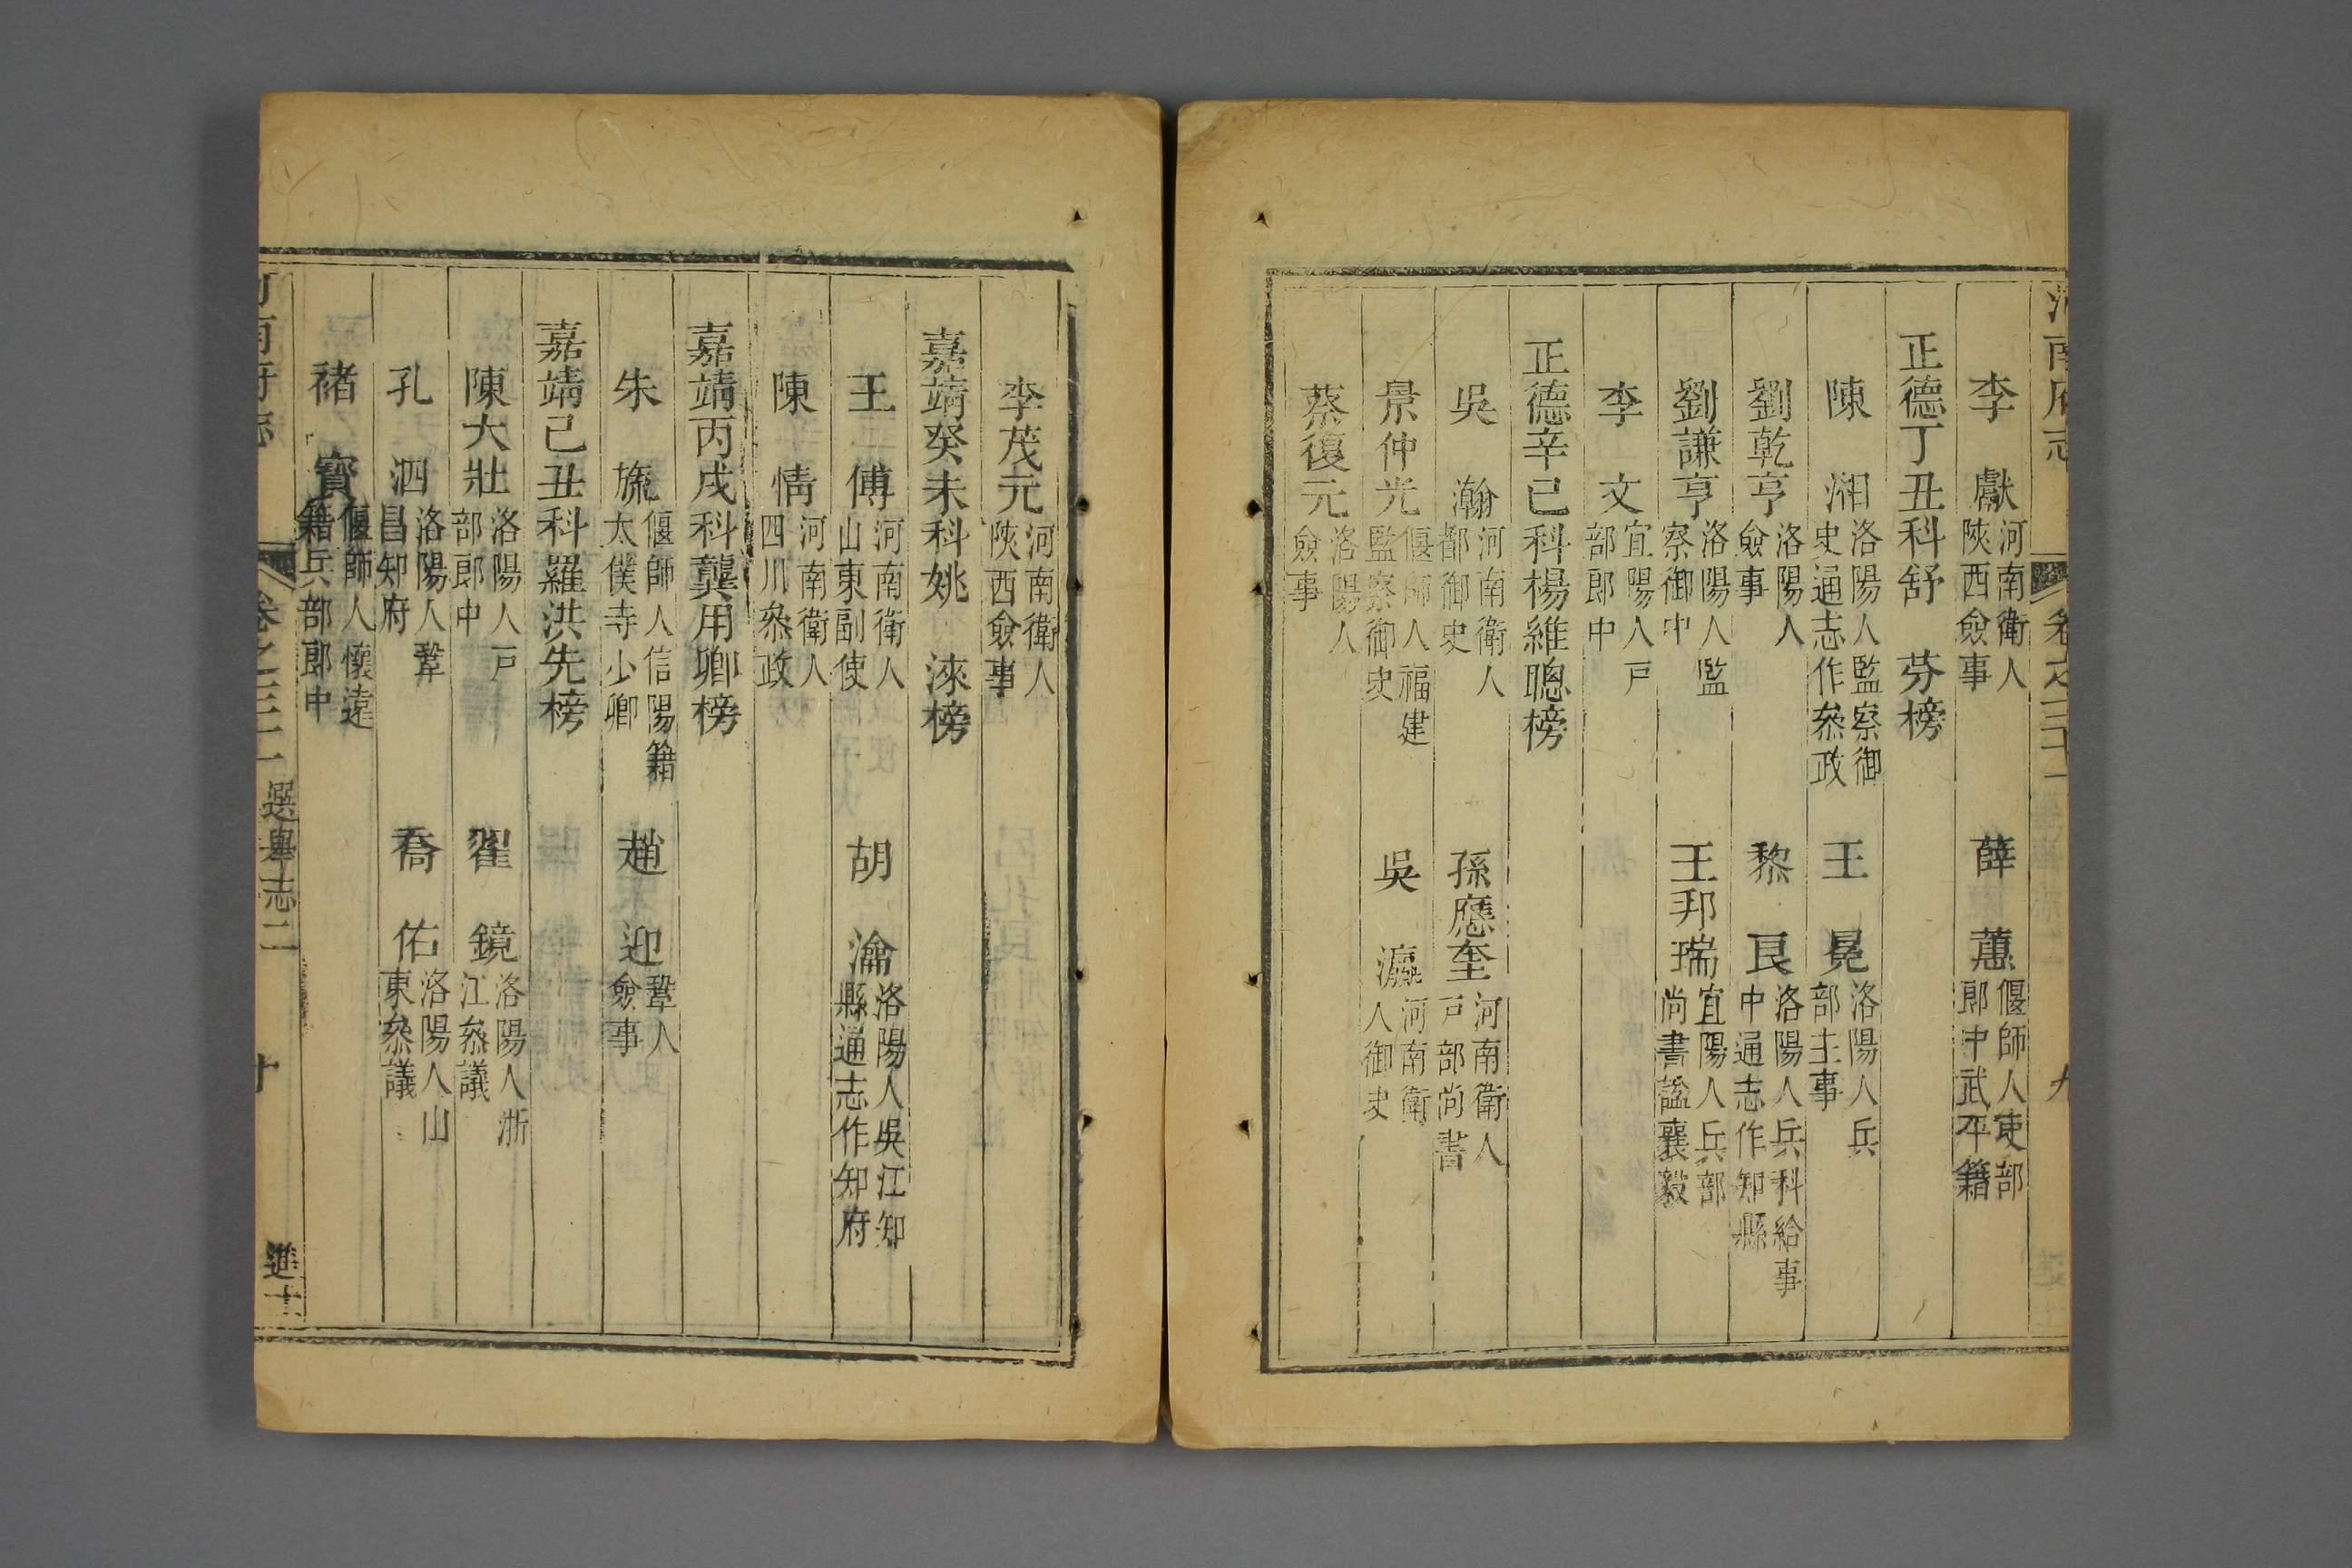 河南府志 卷之三十一 九
李獻 河南衛人陜西僉事 薛蕙 偃師人吏部郎中武平籍
正德丁丑科舒芬榜
陳湘 洛陽人監察御史通志作叅政 王晃 洛陽人兵部主事
劉乾亨 洛陽人僉事 黎良 洛陽人兵科給事中通志作知縣
劉謙亨 洛陽人監察御中 王邦瑞 宜陽人兵部尚書諡襄毅
李文 宜陽人戸部郎中
正德辛巳科楊維聰榜
吳瀚 河南衛人都御史 孫應奎 河南衛人戸部尚書
景仲光 偃師人福建監察御史 吳瀛 河南衛人御史
蔡復元 洛陽人僉事
李茂元 河南衛人陜西僉事
嘉靖癸未科姚淶榜
王傅 河南衛人山東副使 胡瀹 洛陽人吳江知縣通志作知府
陳情 河南衛人四川叅政
嘉靖丙戌科龔用卿榜
朱旒 偃師人信陽籍太僕寺少卿 趙迎 鞏人僉事
嘉靖己丑科羅洪先榜
陳大壯 洛陽人戸部郎中 翟鏡 洛陽人浙江叅議
孔泗 洛陽人鞏昌知府 喬佑 洛陽人山東叅議
褚寳 偃師人懷遠籍兵部郎中
河南府志 卷之三十一 選舉志二 十 進士